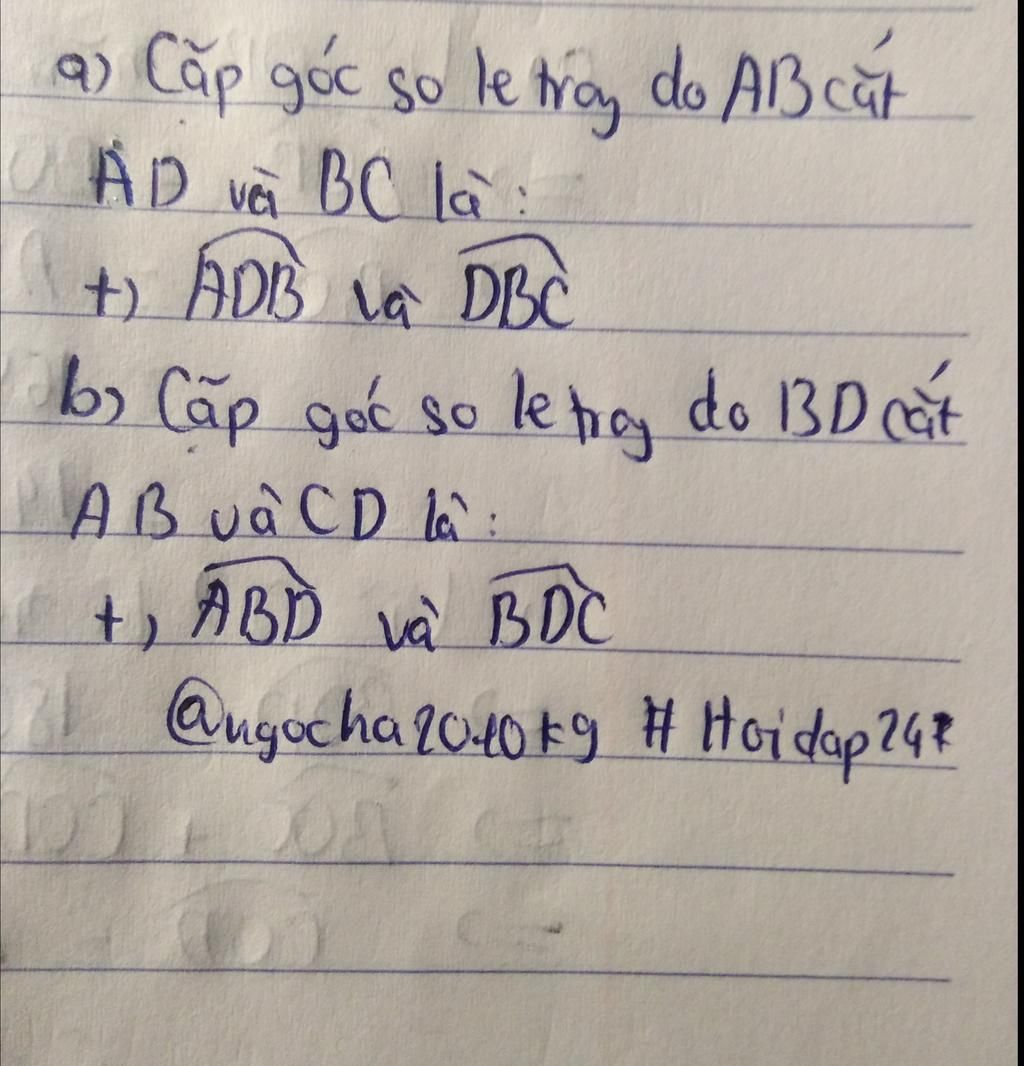 a) Cặp góc so le trong do AB cắt
AD và BC là:
+) ADB và DBC
b) Cặp góc so le trong do BD cắt
AB và CD là:
+, ABD và BDC
@ngocha2010kg #Hoidap247